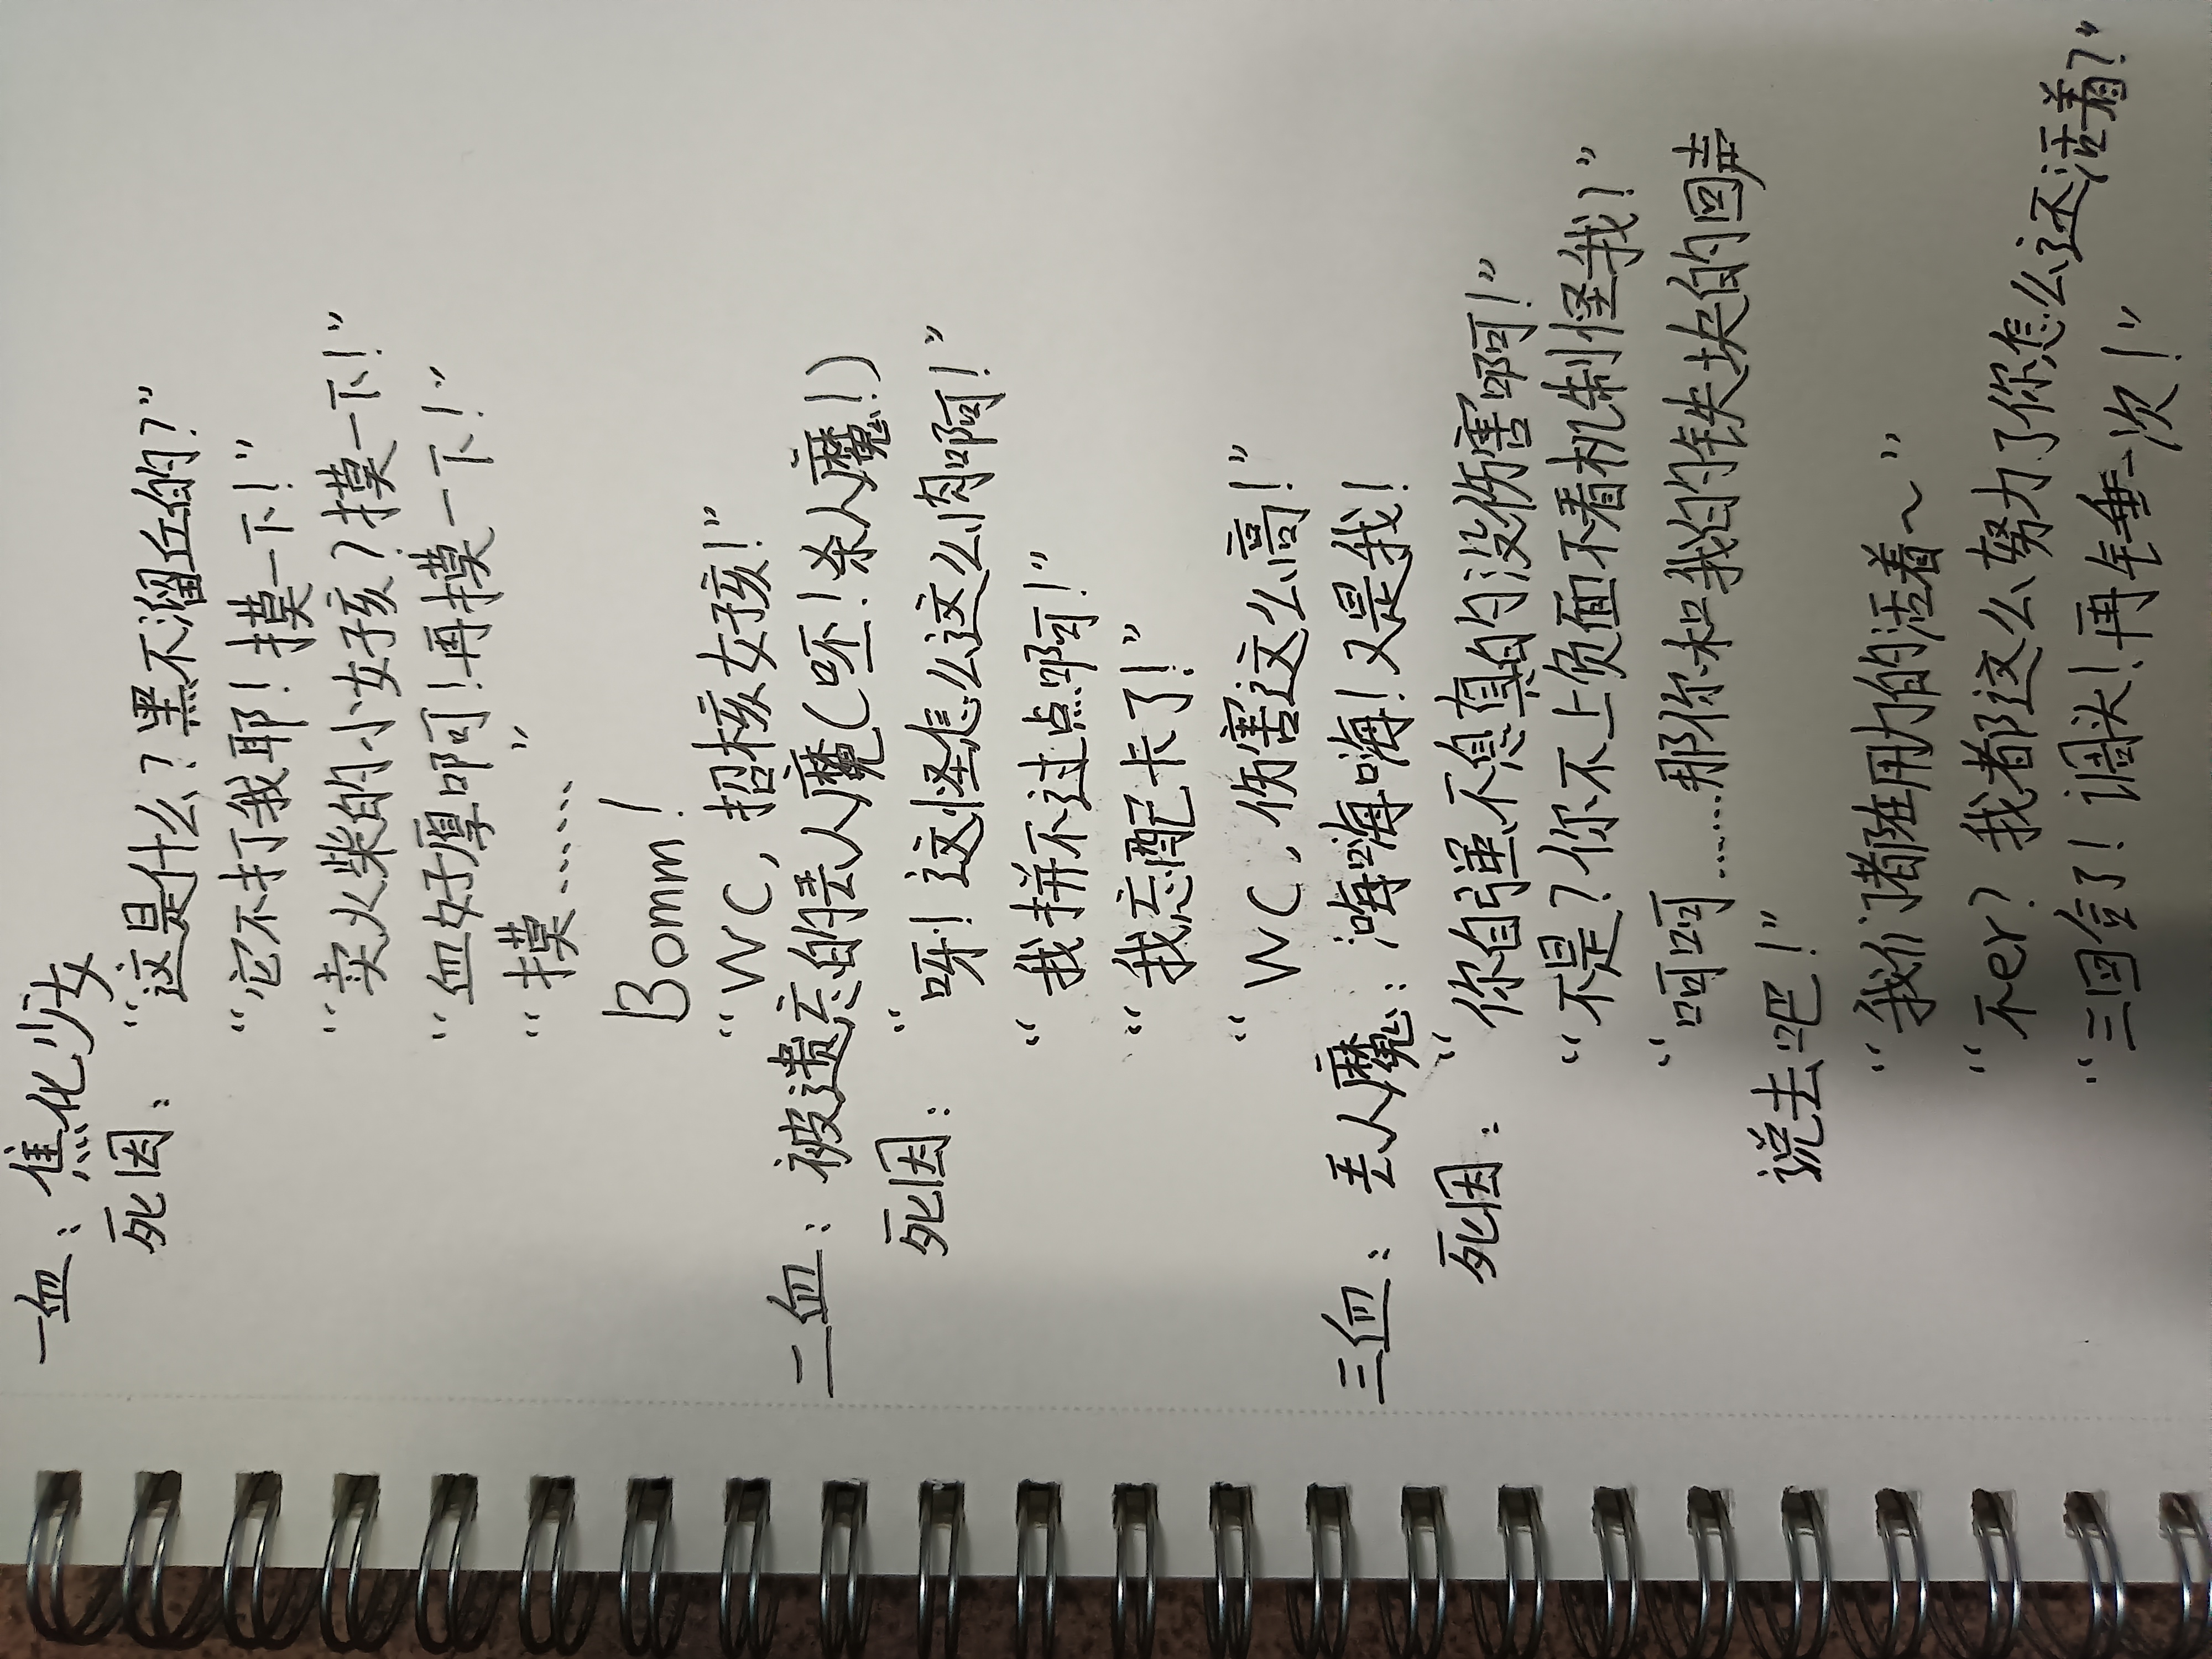 一血：焦化少女
死因：“这是什么？黑不溜丘的？”
“它不打我耶！摸一下！”
“卖火柴的小女孩？摸一下！”
“血好厚啊！再摸一下！”
“摸……”
Bomm！
“WC，招核女孩！”
二血：被遗忘的丢人魔（呸！杀人魔！）
死因：“呀！这怪怎么这么肉啊！”
“我拼不过点啊！”
“我忘配卡了！”
“WC，伤害这么高！”
三血：丢人魔：嗨嗨嗨！又是我！
死因：“你自强不息真的没伤害啊！”
“不是？你不上负面不看机制怪我？”
“呵呵……那你和我的铁块的回声
说去吧！”
“我们都在用力的活着～”
“不er？我都这么努力了你怎么还活着？”
“三回合了！调头！再锤一次！”